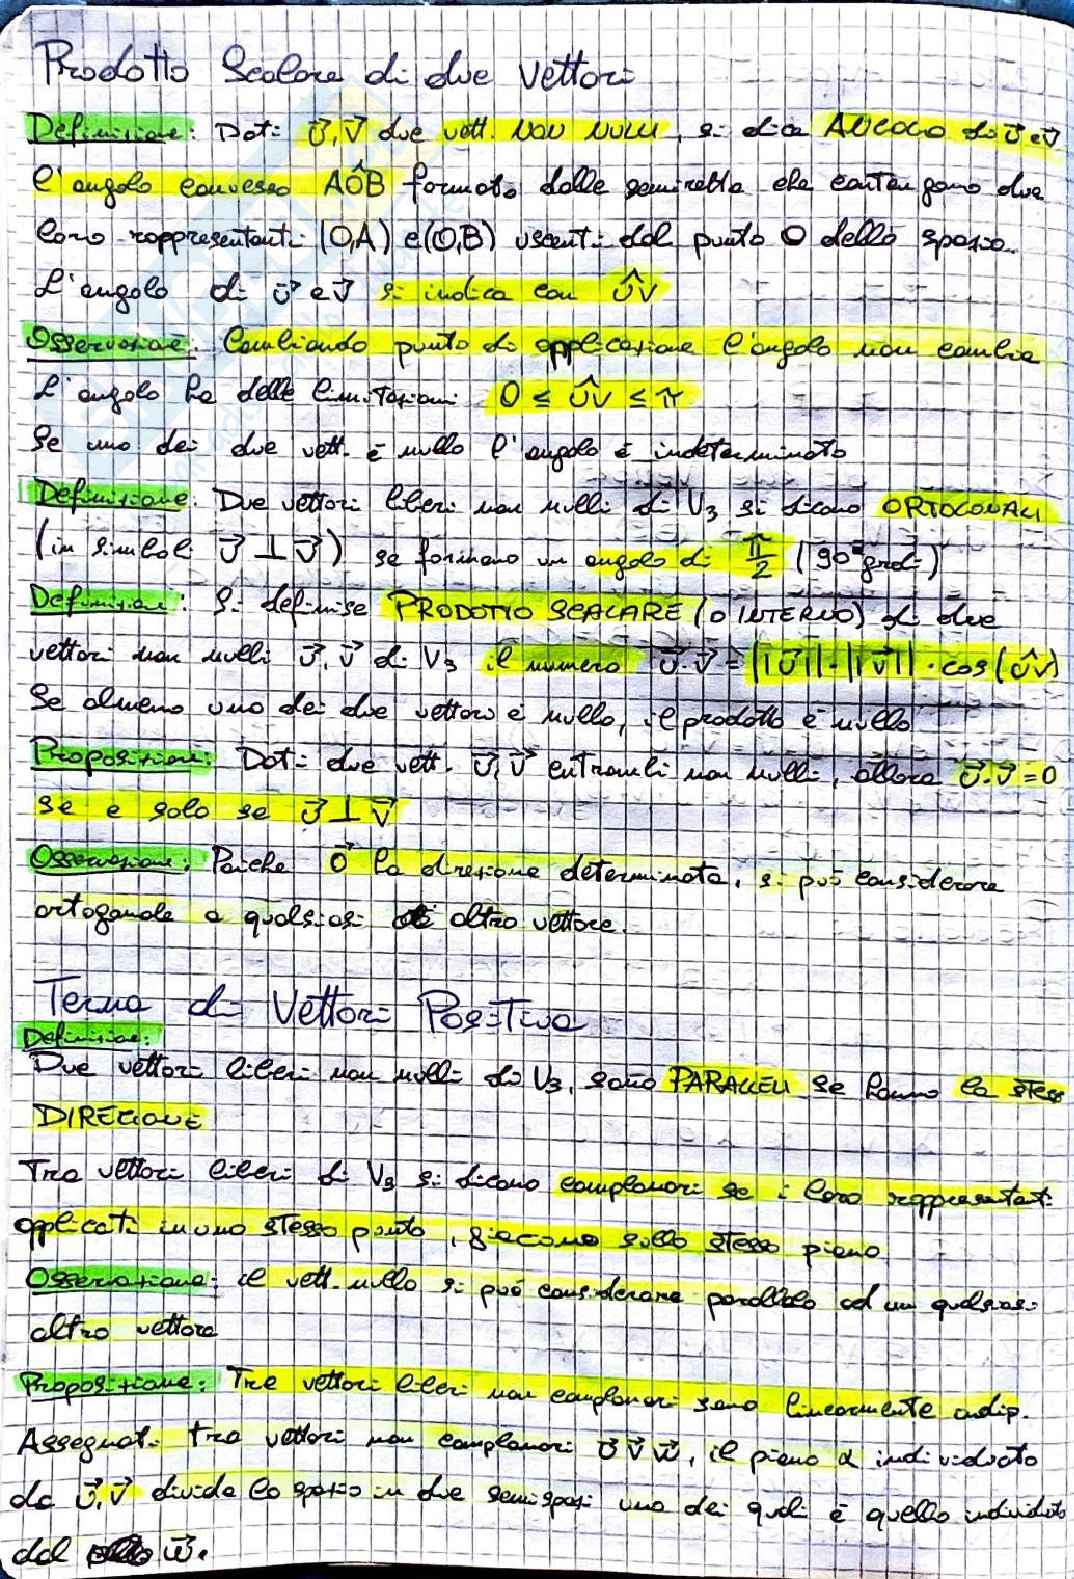 Prodotto Scalare di due Vettori
Definizione: Dati u⃗, v⃗ due vett. NON NULLI, si dice ANGOLO di u⃗ e v⃗
l'angolo convesso AÔB formato dalle semirette che contengono due
loro rappresentanti (O,A) e (O,B) uscenti dal punto O dello spazio.
L'angolo di u⃗ e v⃗ si indica con ûv
Osservazione: Cambiando punto di applicazione l'angolo non cambia
L'angolo ha delle limitazioni 0 ≤ ûv ≤ π
Se uno dei due vett. è nullo l'angolo è indeterminato
Definizione: Due vettori liberi non nulli di V₃ si dicono ORTOGONALI
(in simboli u⃗ ⊥ v⃗) se formano un angolo di π/2 (90° gradi)
Definizione: Si definise PRODOTTO SCALARE (O INTERNO) di due
vettori non nulli u⃗, v⃗ di V₃ il numero u⃗·v⃗ = ||u⃗||·||v⃗||·cos(ûv)
Se almeno uno dei due vettori è nullo, il prodotto è nullo
Proposizione: Dati due vett. u⃗, v⃗ entrambi non nulli, allora u⃗·v⃗ = 0
se e solo se u⃗ ⊥ v⃗
Osservazione: Poiche 0⃗ ha direzione determinata, si può considerare
ortogonale a qualsiasi altro vettore.
Terna di Vettori Positiva
Definizione:
Due vettori liberi non nulli di V₃, sono PARALLELI se hanno la stess
DIREZIONE
Tre vettori liberi di V₃ si dicono complanari se i loro rappresentati
applicati in uno stesso punto, giacono sullo stesso piano
Osservazione: il vett. nullo si può considerare parallelo ad un qualsiasi
altro vettore
Proposizione: Tre vettori liberi non complanari sono linearmente indip.
Assegnati tre vettori non complanari u⃗ v⃗ w⃗, il piano α individuato
da u⃗, v⃗ divide lo spazio in due semispazi uno dei quali è quello individuato
dal w⃗.